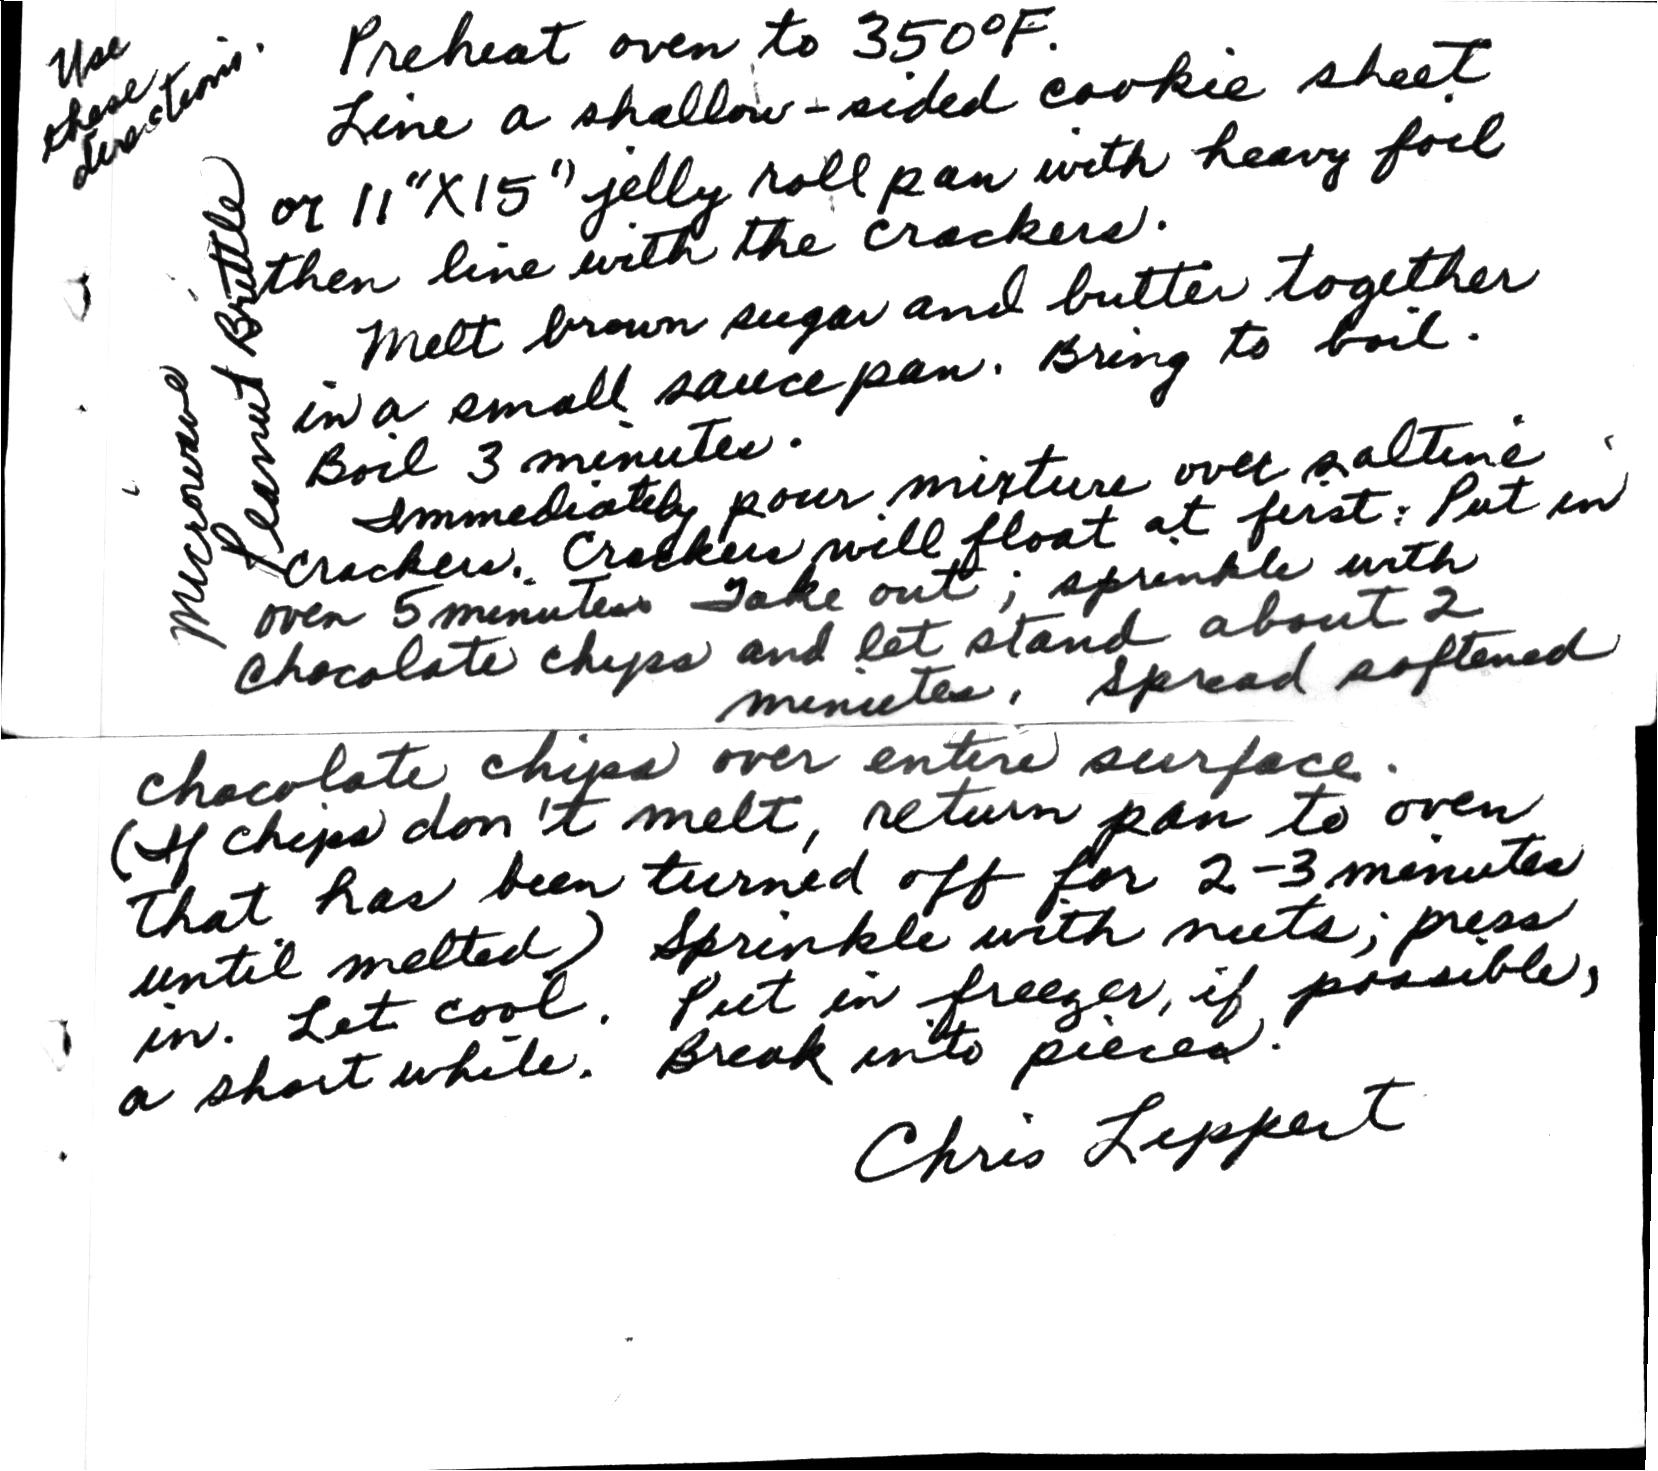 Use
these
directions.
Microwave
Peanut Brittle
Preheat oven to 350°F.
Line a shallow-sided cookie sheet
or 11"X15" jelly roll pan with heavy foil
then line with the crackers.
Melt brown sugar and butter together
in a small saucepan. Bring to boil.
Boil 3 minutes.
Immediately pour mixture over saltine
crackers. Crackers will float at first. Put in
oven 5 minutes. Take out; sprinkle with
chocolate chips and let stand about 2
minutes. Spread softened
chocolate chips over entire surface.
(If chips don't melt, return pan to oven
that has been turned off for 2-3 minutes
until melted) Sprinkle with nuts; press
in. Let cool. Put in freezer, if possible,
a short while. Break into pieces.
Chris Leppert